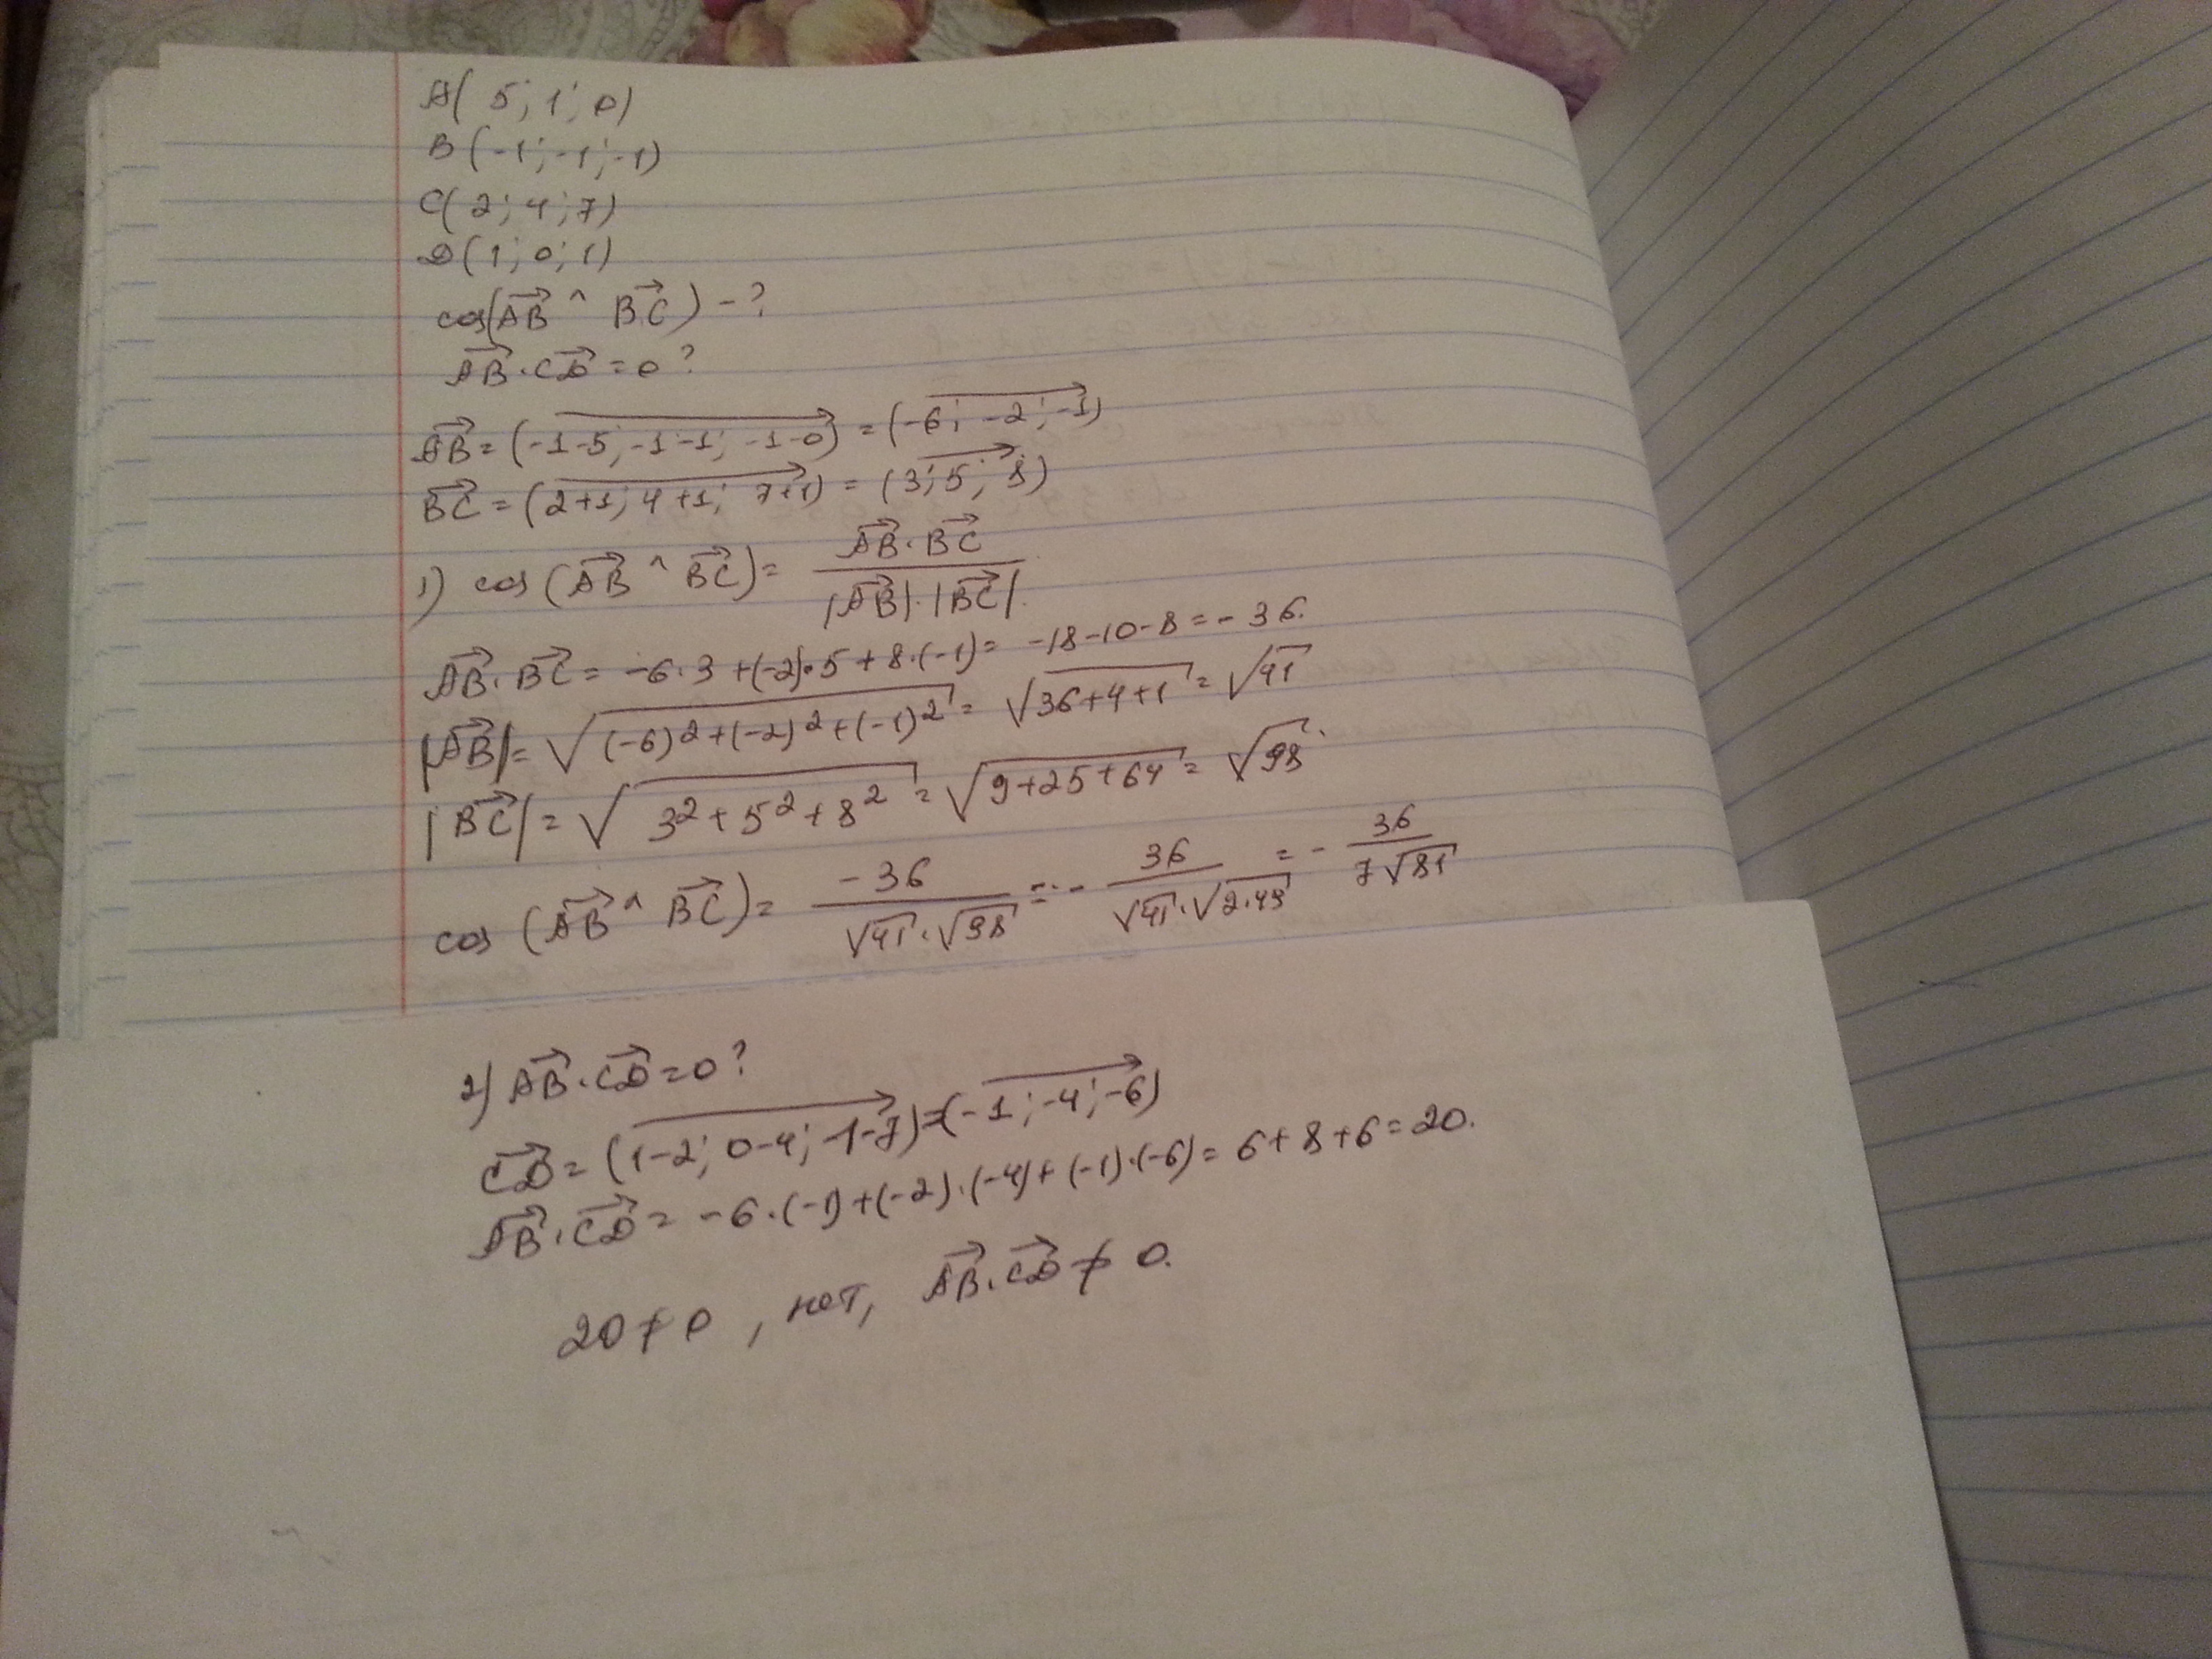 A( 5; 1; 0)
B (-1; -1; -1)
C( 2; 4; 7)
D (1; 0; 1)
cos(AB^→ ^ BC^→) - ?
AB^→ · CD^→ = 0 ?
AB^→ = (-1-5; -1-1; -1-0) = (-6; -2; -1)
BC^→ = (2+1; 4+1; 7+1) = (3; 5; 8)
1) cos (AB^→ ^ BC^→) = AB^→ · BC^→ / |AB^→| · |BC^→|.
AB^→ · BC^→ = -6·3 + (-2)·5 + 8·(-1) = -18-10-8 = -36.
|AB^→| = √((-6)² + (-2)² + (-1)²) = √(36+4+1) = √41
|BC^→| = √(3² + 5² + 8²) = √(9+25+64) = √98.
cos (AB^→ ^ BC^→) = -36 / √41·√98 = - 36 / √41·√(2·49) = - 36 / 7√81
2) AB^→ · CD^→ = 0 ?
CD^→ = (1-2; 0-4; -1-7) = (-1; -4; -6)
AB^→ · CD^→ = -6·(-1) + (-2)·(-4) + (-1)·(-6) = 6+8+6 = 20.
20 ≠ 0, нет, AB^→ · CD^→ ≠ 0.